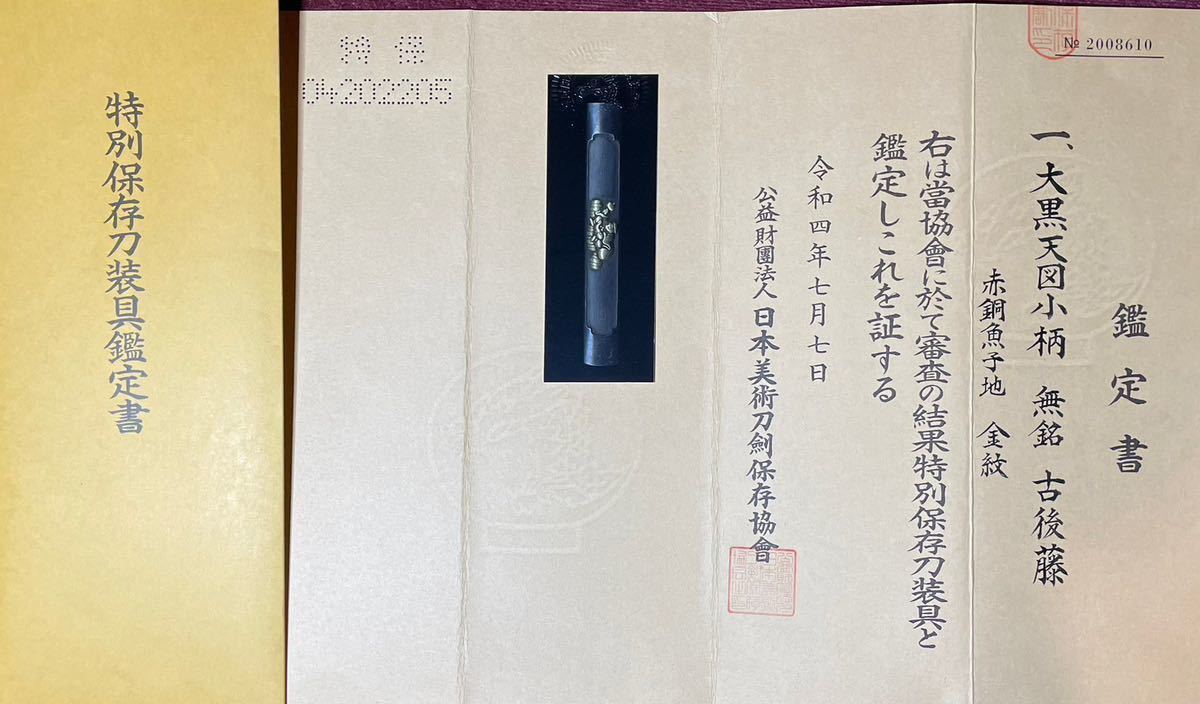 鑑定書
№ 2008610
一、大黒天図小柄 無銘 古後藤
赤銅魚子地 金紋
右は當協會に於て審査の結果特別保存刀装具と
鑑定しこれを証する
令和四年七月七日
公益財團法人 日本美術刀劍保存協會
特保
04202205
特別保存刀装具鑑定書